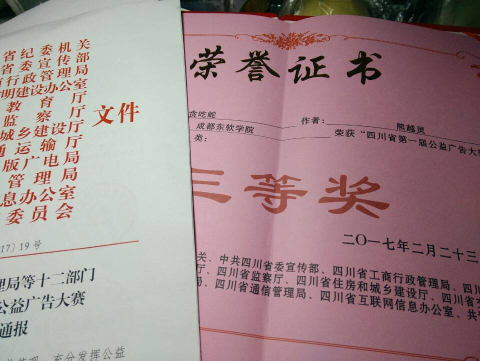 省纪委机关
省委宣传部
行政管理局
明建设办公室
教育厅
监察厅
城乡建设厅
通运输厅
版广电局
管理局
息办公室
委员会
文件
17〕19号
理局等十二部门
公益广告大赛
通报
充分发挥公益
荣誉证书
贪吃蛇
作者：
熊越灵
成都东软学院
荣获“四川省第一届公益广告大赛
类：
三等奖
二〇一七年二月二十三
关、中共四川省委宣传部、四川省工商行政管理局、四川
厅、四川省监察厅、四川省住房和城乡建设厅、四川省
局、四川省通信管理局、四川省互联网信息办公室、共